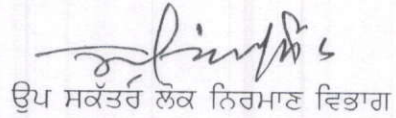 ਉਪ ਸਕੱਤਰ ਲੋਕ ਨਿਰਮਾਣ ਵਿਭਾਗ